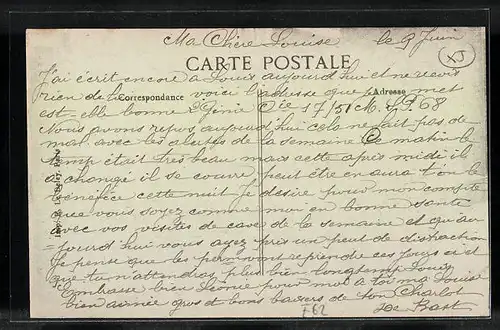 Ma Chère Louise le 9 Juin
CARTE POSTALE
J'ai écrit encore à Louis aujourd'hui et ne reçois
rien de lui voici l'adresse que met
Correspondance Adresse
est-elle bonne 2 Génie Cie 17/51 M. S.P. 68
Nous avons repos aujourd'hui cela ne fait pas de
mal avec les alertes de la semaine Ce matin le
temp était très beau mais cette après midi il
a changé il se couvre peut être en aura t'on le
bénéfice cette nuit Je désire pour mon compte
que vous soyez comme moi en bonne santé
avec vos visites de cave de la semaine et qu'au-
=jourd'hui vous ayez pris un peut de distraction
Je pense que les perm vont reprendre ces jours ci et
que tu n'attendras plus bien longtemp Louis
Embrasse bien Léonie pour moi à toi ma Louise
bien aimée gros et bons baisers de ton Charlot
Le Bast
XJ